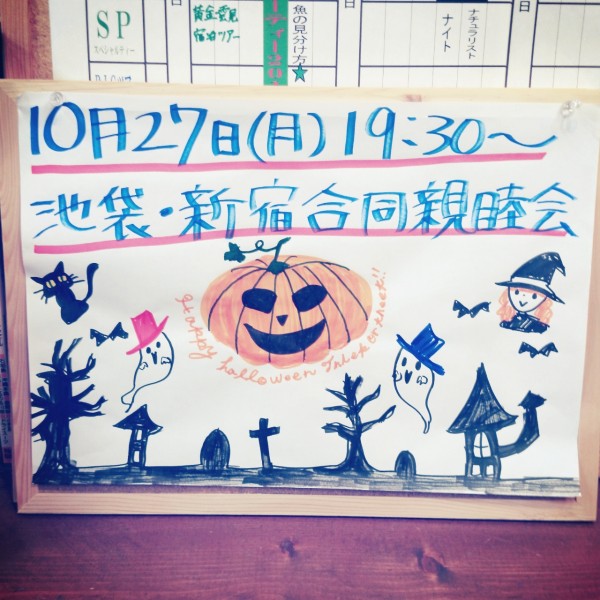 SP
スペシャルティー
黄金崎
宿泊ツアー
魚の見分け方★
ナイト
ナチュラリスト
10月27日(月)19:30〜
池袋・新宿合同親睦会
Happy halloween Trick or treat!!